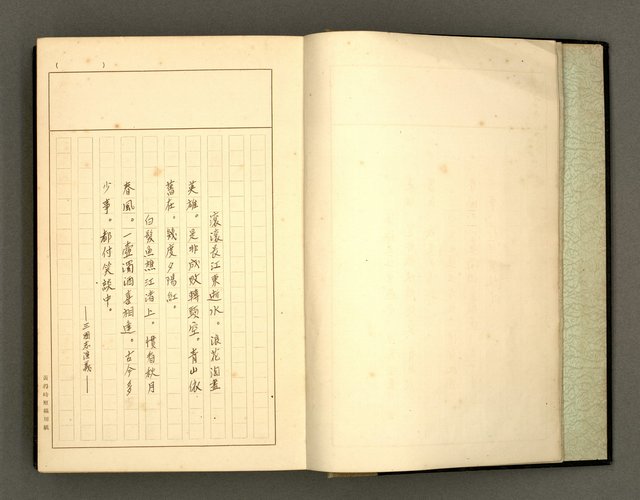 滾滾長江東逝水。浪花淘盡
英雄。是非成敗轉頭空。青山依
舊在。幾度夕陽紅。
白髮魚樵江渚上。慣看秋月
春風。一壺濁酒喜相逢。古今多
少事。都付笑談中。
——三國志演義——
黃得時原稿用紙